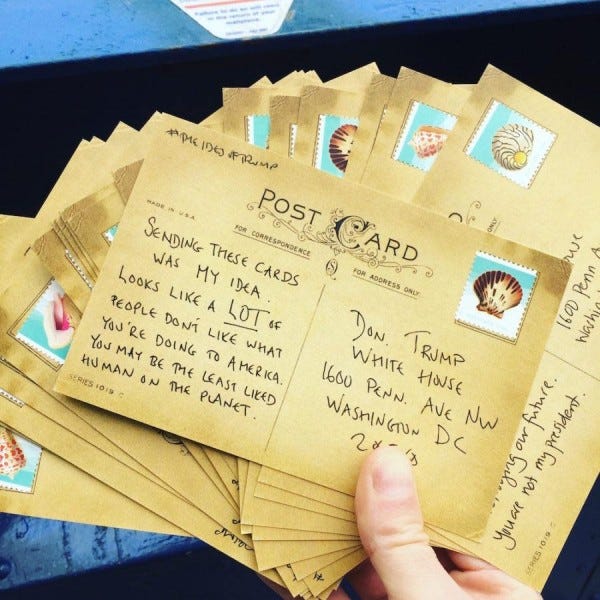 Failure to do so will result
in the return of your
mailpiece.
#THE IDES OF TRUMP
MADE IN U.S.A.
POST CARD
FOR CORRESPONDENCE
FOR ADDRESS ONLY
SENDING THESE CARDS
WAS MY IDEA.
LOOKS LIKE A LOT OF
PEOPLE DON'T LIKE WHAT
YOU'RE DOING TO AMERICA.
YOU MAY BE THE LEAST LIKED
HUMAN ON THE PLANET.
SERIES 1019
DON. TRUMP
WHITE HOUSE
1600 PENN. AVE NW
WASHINGTON DC
ONLY
1600 Penn
our future.
You are not my president.
SERIES 1019